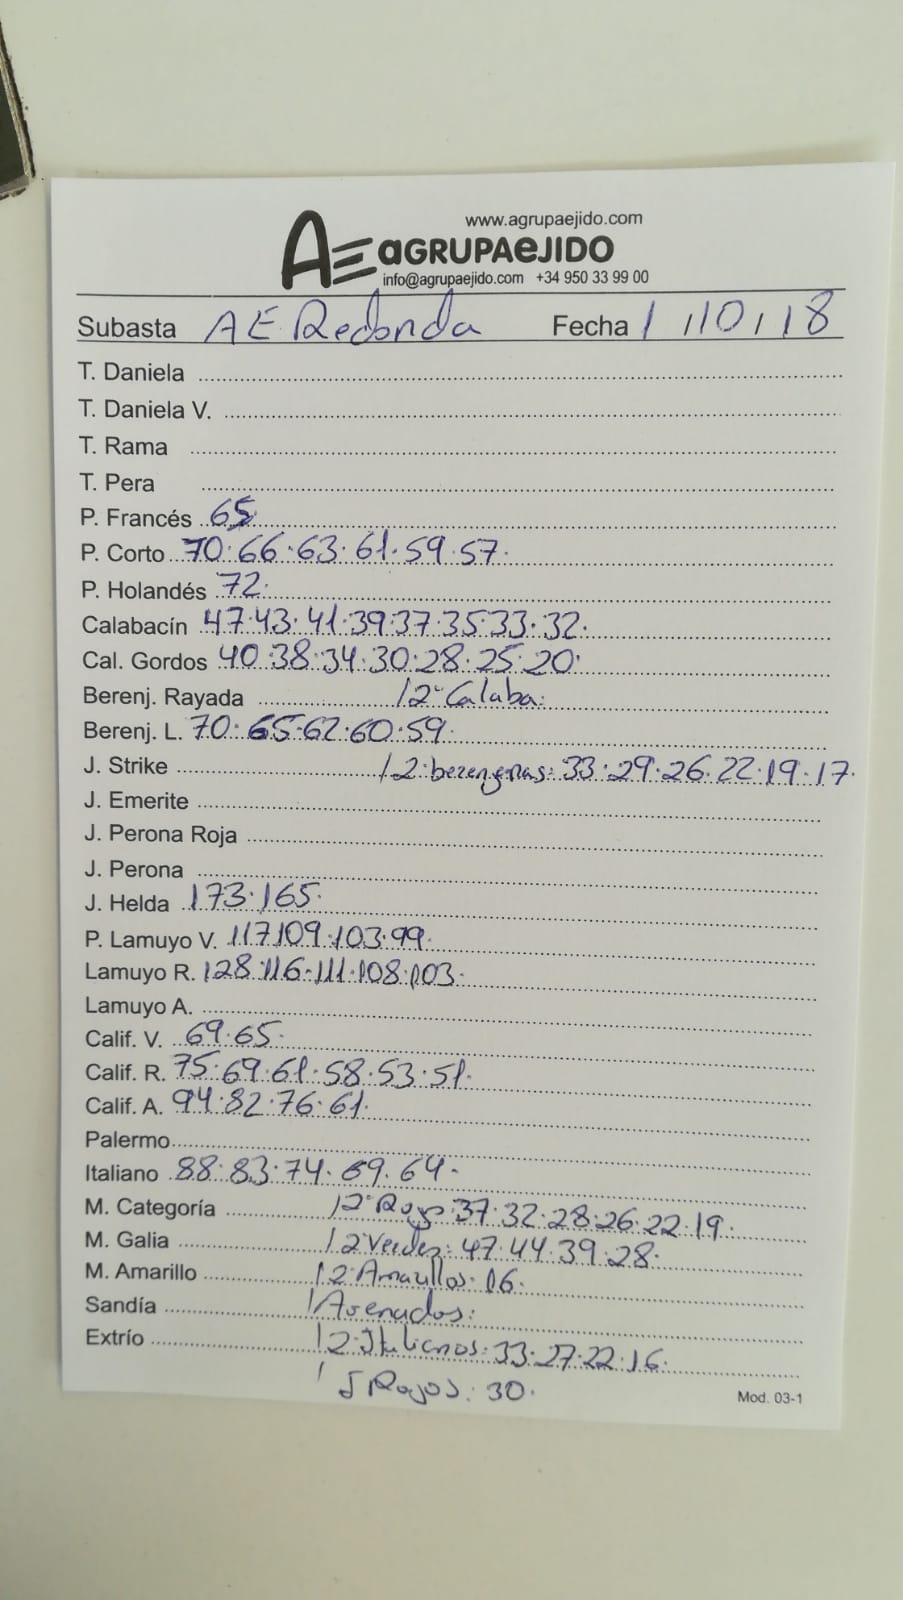 www.agrupaejido.com
AE aGRUPAeJIDO
info@agrupaejido.com +34 950 33 99 00
Subasta AE Redonda Fecha 1/10/18
T. Daniela
T. Daniela V.
T. Rama
T. Pera
P. Francés 65
P. Corto 70·66·63·61·59·57·
P. Holandés 72·
Calabacín 47·43·41·39·37·35·33·32·
Cal. Gordos 40·38·34·30·28·25·20·
Berenj. Rayada /2ª Calaba:
Berenj. L. 70·65·62·60·59·
J. Strike /2·berengenas: 33·29·26·22·19·17·
J. Emerite
J. Perona Roja
J. Perona
J. Helda 173·165·
P. Lamuyo V. 117·109·103·99·
Lamuyo R. 128·116·111·108·103·
Lamuyo A.
Calif. V. 69·65·
Calif. R. 75·69·61·58·53·51·
Calif. A. 94·82·76·61·
Palermo
Italiano 88·83·74·69·64·
M. Categoría /2ª Rojo: 37·32·28·26·22·19·
M. Galia /2 Verdes: 47·44·39·28·
M. Amarillo /2 Amarillos: 16·
Sandía / Asenados:
Extrío /2·Italianos: 33·27·22·16·
/ J Rojos: 30·
Mod. 03-1